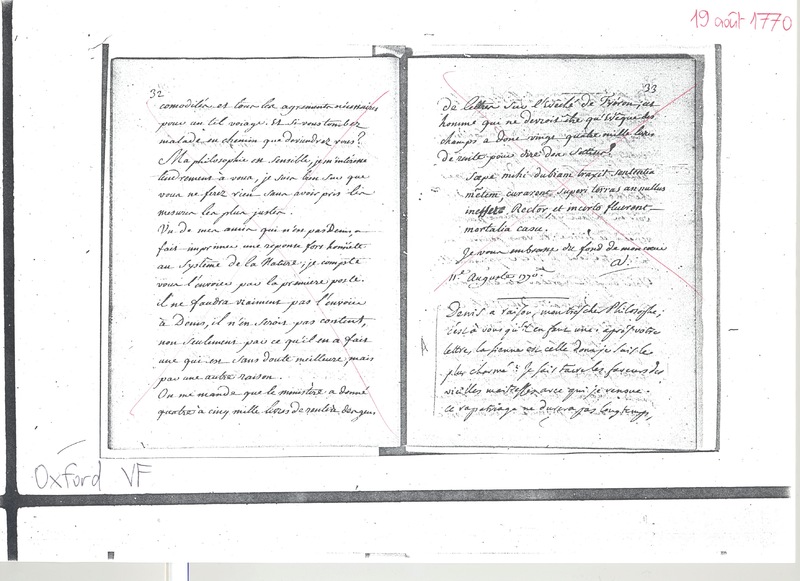 19 août 1770
32
comodités et tous les agrements nécessaires
pour un tel voyage. Et si vous tombez
malade en chemin que deviendrez vous?
Ma philosophie est sensible, je m'intéresse
tendrement à vous, je suis bien sûr que
vous ne ferez rien sans avoir pris les
mesures les plus justes.
Un de mes amis qui n'est pas Denis, a
fait imprimer une reponse fort honnête
au Système de la Nature; je compte
vous l'envoier par la premiere poste.
il ne faudra vraiment pas l'envoier
à Denis, il n'en seroit pas content,
non seulement parce qu'il en a fait
une qui est sans doute meilleure, mais
par une autre raison.
On me mande que le ministère a donné
quatre à cinq mille livres de rente
33
de lettres sur l'Evêché de
homme qui ne devroit être qu'Evêque des
champs a donc vingt quatre mille livres
de rente pour dire des
Sæpe mihi dubiam traxit sententia
mentem, curarent superi terras an nullus
Rector et incerto fluerent
mortalia casu.
Je vous embrasse du fond de mon cœur
11e Auguste 1770.
Denis a raison, mon très cher Philosophe;
c'est à vous qu'il en faut une; après votre
lettre, la sienne est celle dont je suis le
plus charmé. Je sais taire les faveurs des
vieilles maitresses avec qui je renoue.
ce rapatriage ne durera pas longtemps,
A
Oxford VF